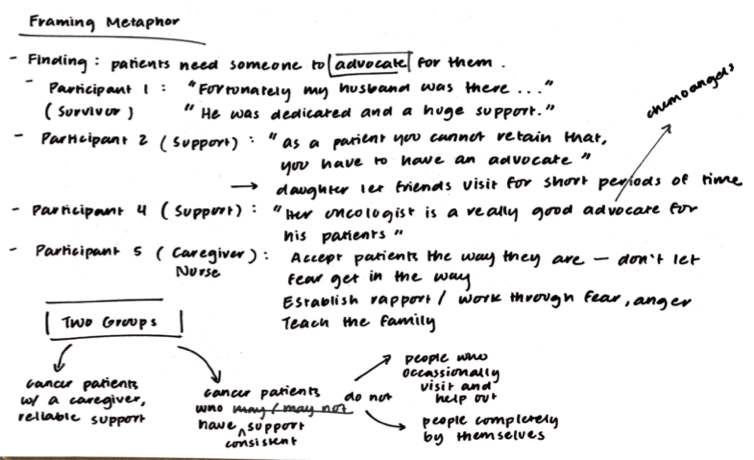 Framing Metaphor
- Finding : patients need someone to advocate for them .
- Participant 1 : "Fortunately my husband was there ..."
(Survivor) "He was dedicated and a huge support."
chemoangels
- Participant 2 (Support) : "as a patient you cannot retain that,
you have to have an advocate"
→ daughter let friends visit for short periods of time
- Participant 4 (Support) : "Her oncologist is a really good advocate for
his patients"
- Participant 5 (Caregiver) : Accept patients the way they are — don't let
Nurse fear get in the way
Establish rapport / work through fear, anger
Teach the family
Two Groups
cancer patients
w/ a caregiver,
reliable support
cancer patients do not
who may/may not
have ^ support
consistent
people who
occassionally
visit and
help out
people completely
by themselves